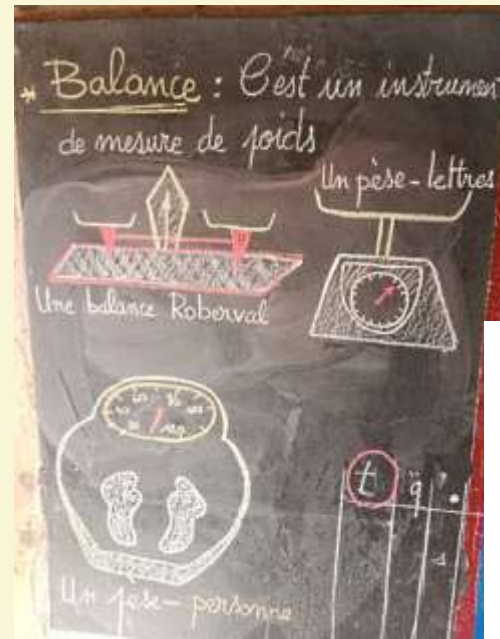 * Balance : C'est un instrumen
de mesure de poids
Un pèse-lettres
Une balance Roberval
Un pèse-personne
t q